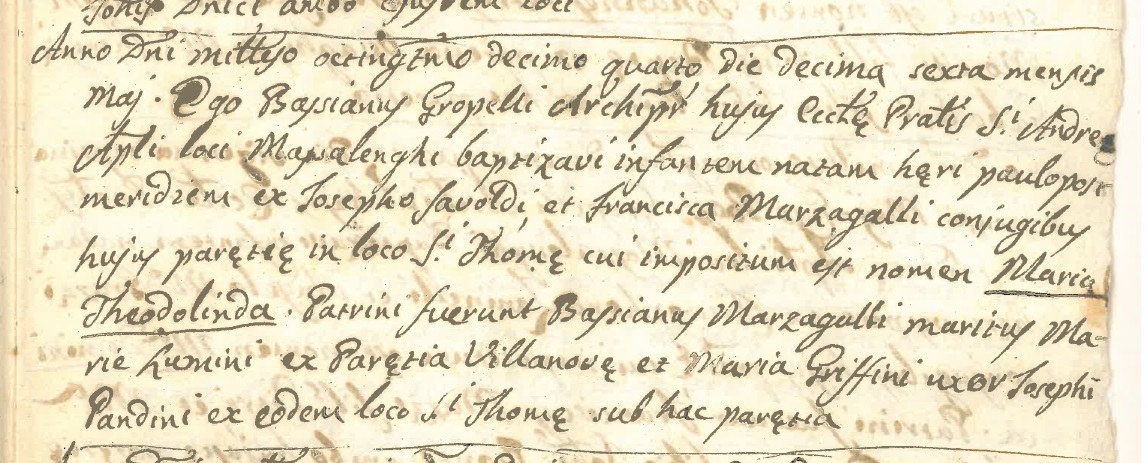 Anno Dni millſyo octingtmo decimo quarto die decima sexta mensis
Maj. Ego Bassianus Gropelli Archipr hujus Ecclę Pratis S.i Andreę
Apli loci Majsalenghi baptizavi infantem natam hęri paulopost
meridiem ex Josepho Savoldi et Francisca Marzagalli conjugibus
hujus parętię in loco S.i Thomę cui impositum est nomen Maria
Theodolinda. Patrini fuerunt Bassianus Marzagalli maritus Ma-
rię Lumini ex Parętia Villanovę et Maria Griffini uxor Josephi
Pandini ex eodem loco S.i Thomę sub hac parętia